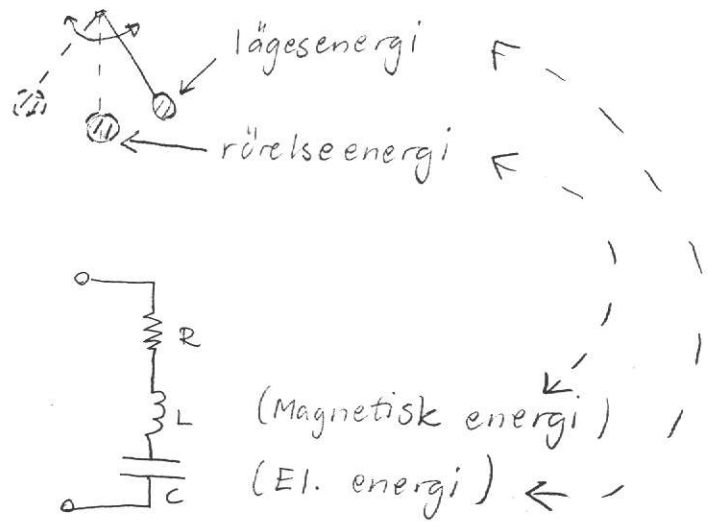 lägesenergi
rörelseenergi
R
L (Magnetisk energi)
C (El. energi)